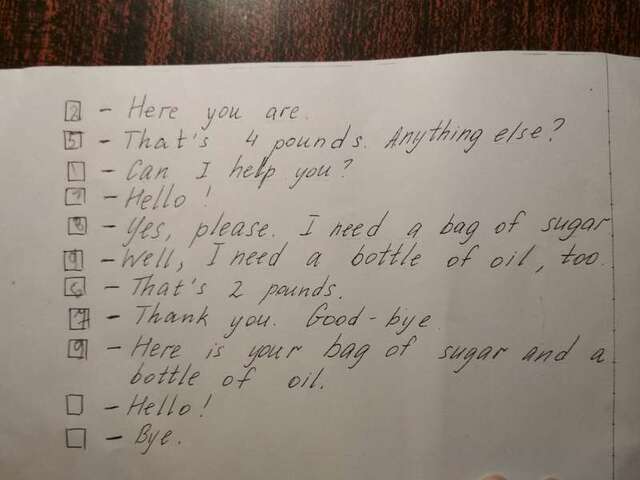 2 - Here you are.
5 - That's 4 pounds. Anything else?
1 - Can I help you?
- Hello!
8 - Yes, please. I need a bag of sugar
9 - Well, I need a bottle of oil, too.
6 - That's 2 pounds.
7 - Thank you. Good-bye
9 - Here is your bag of sugar and a
bottle of oil.
- Hello!
- Bye.